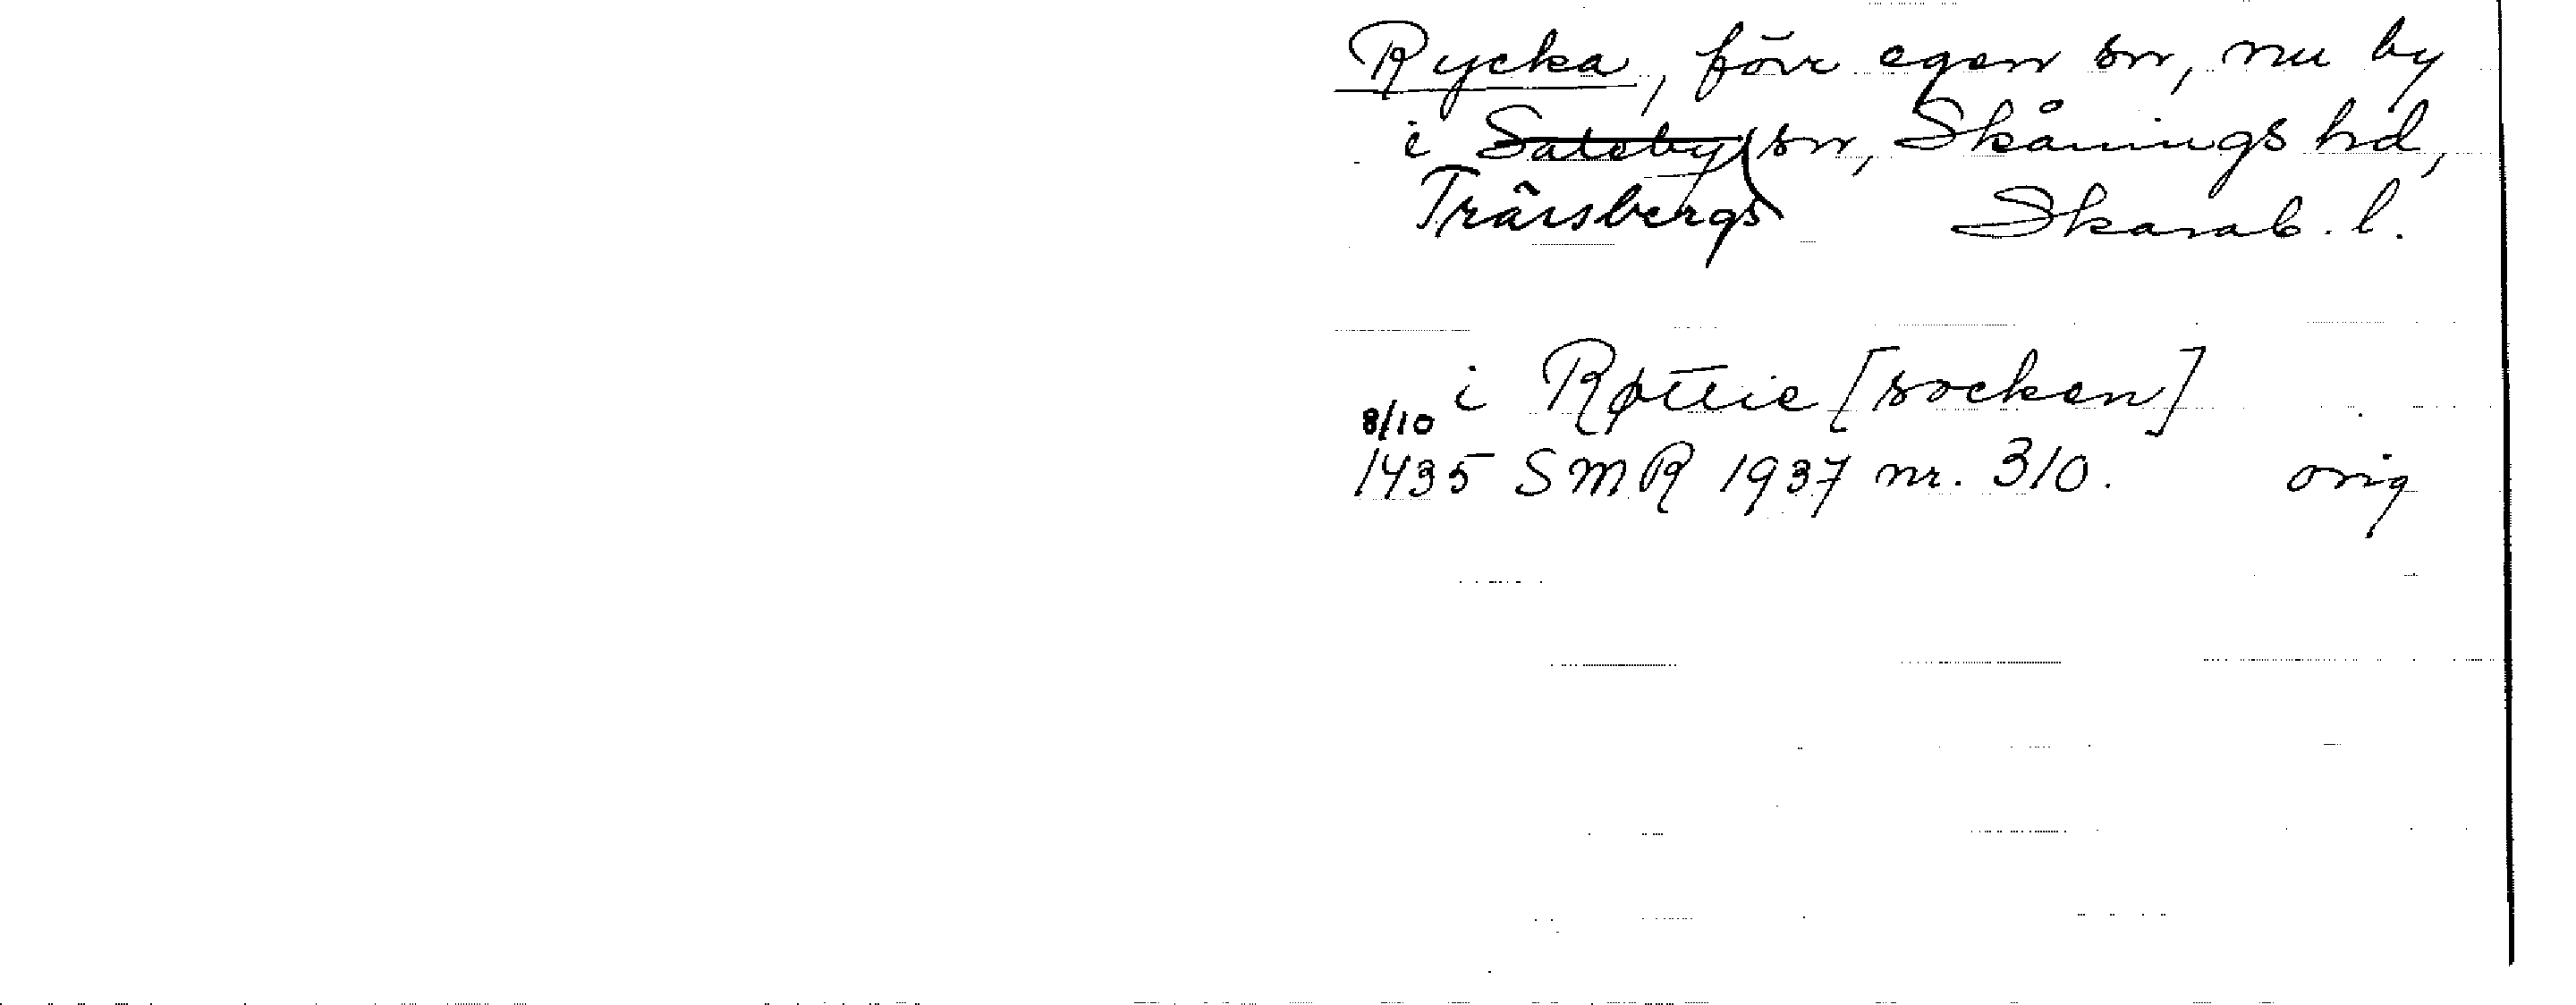 Rycka, förr egen sn, nu by
i Saleby sn, Skånings hd,
Trässbergs Skarab. l.
i Røttie [socken]
8/10
1435 SMR 1937 nr. 310. orig